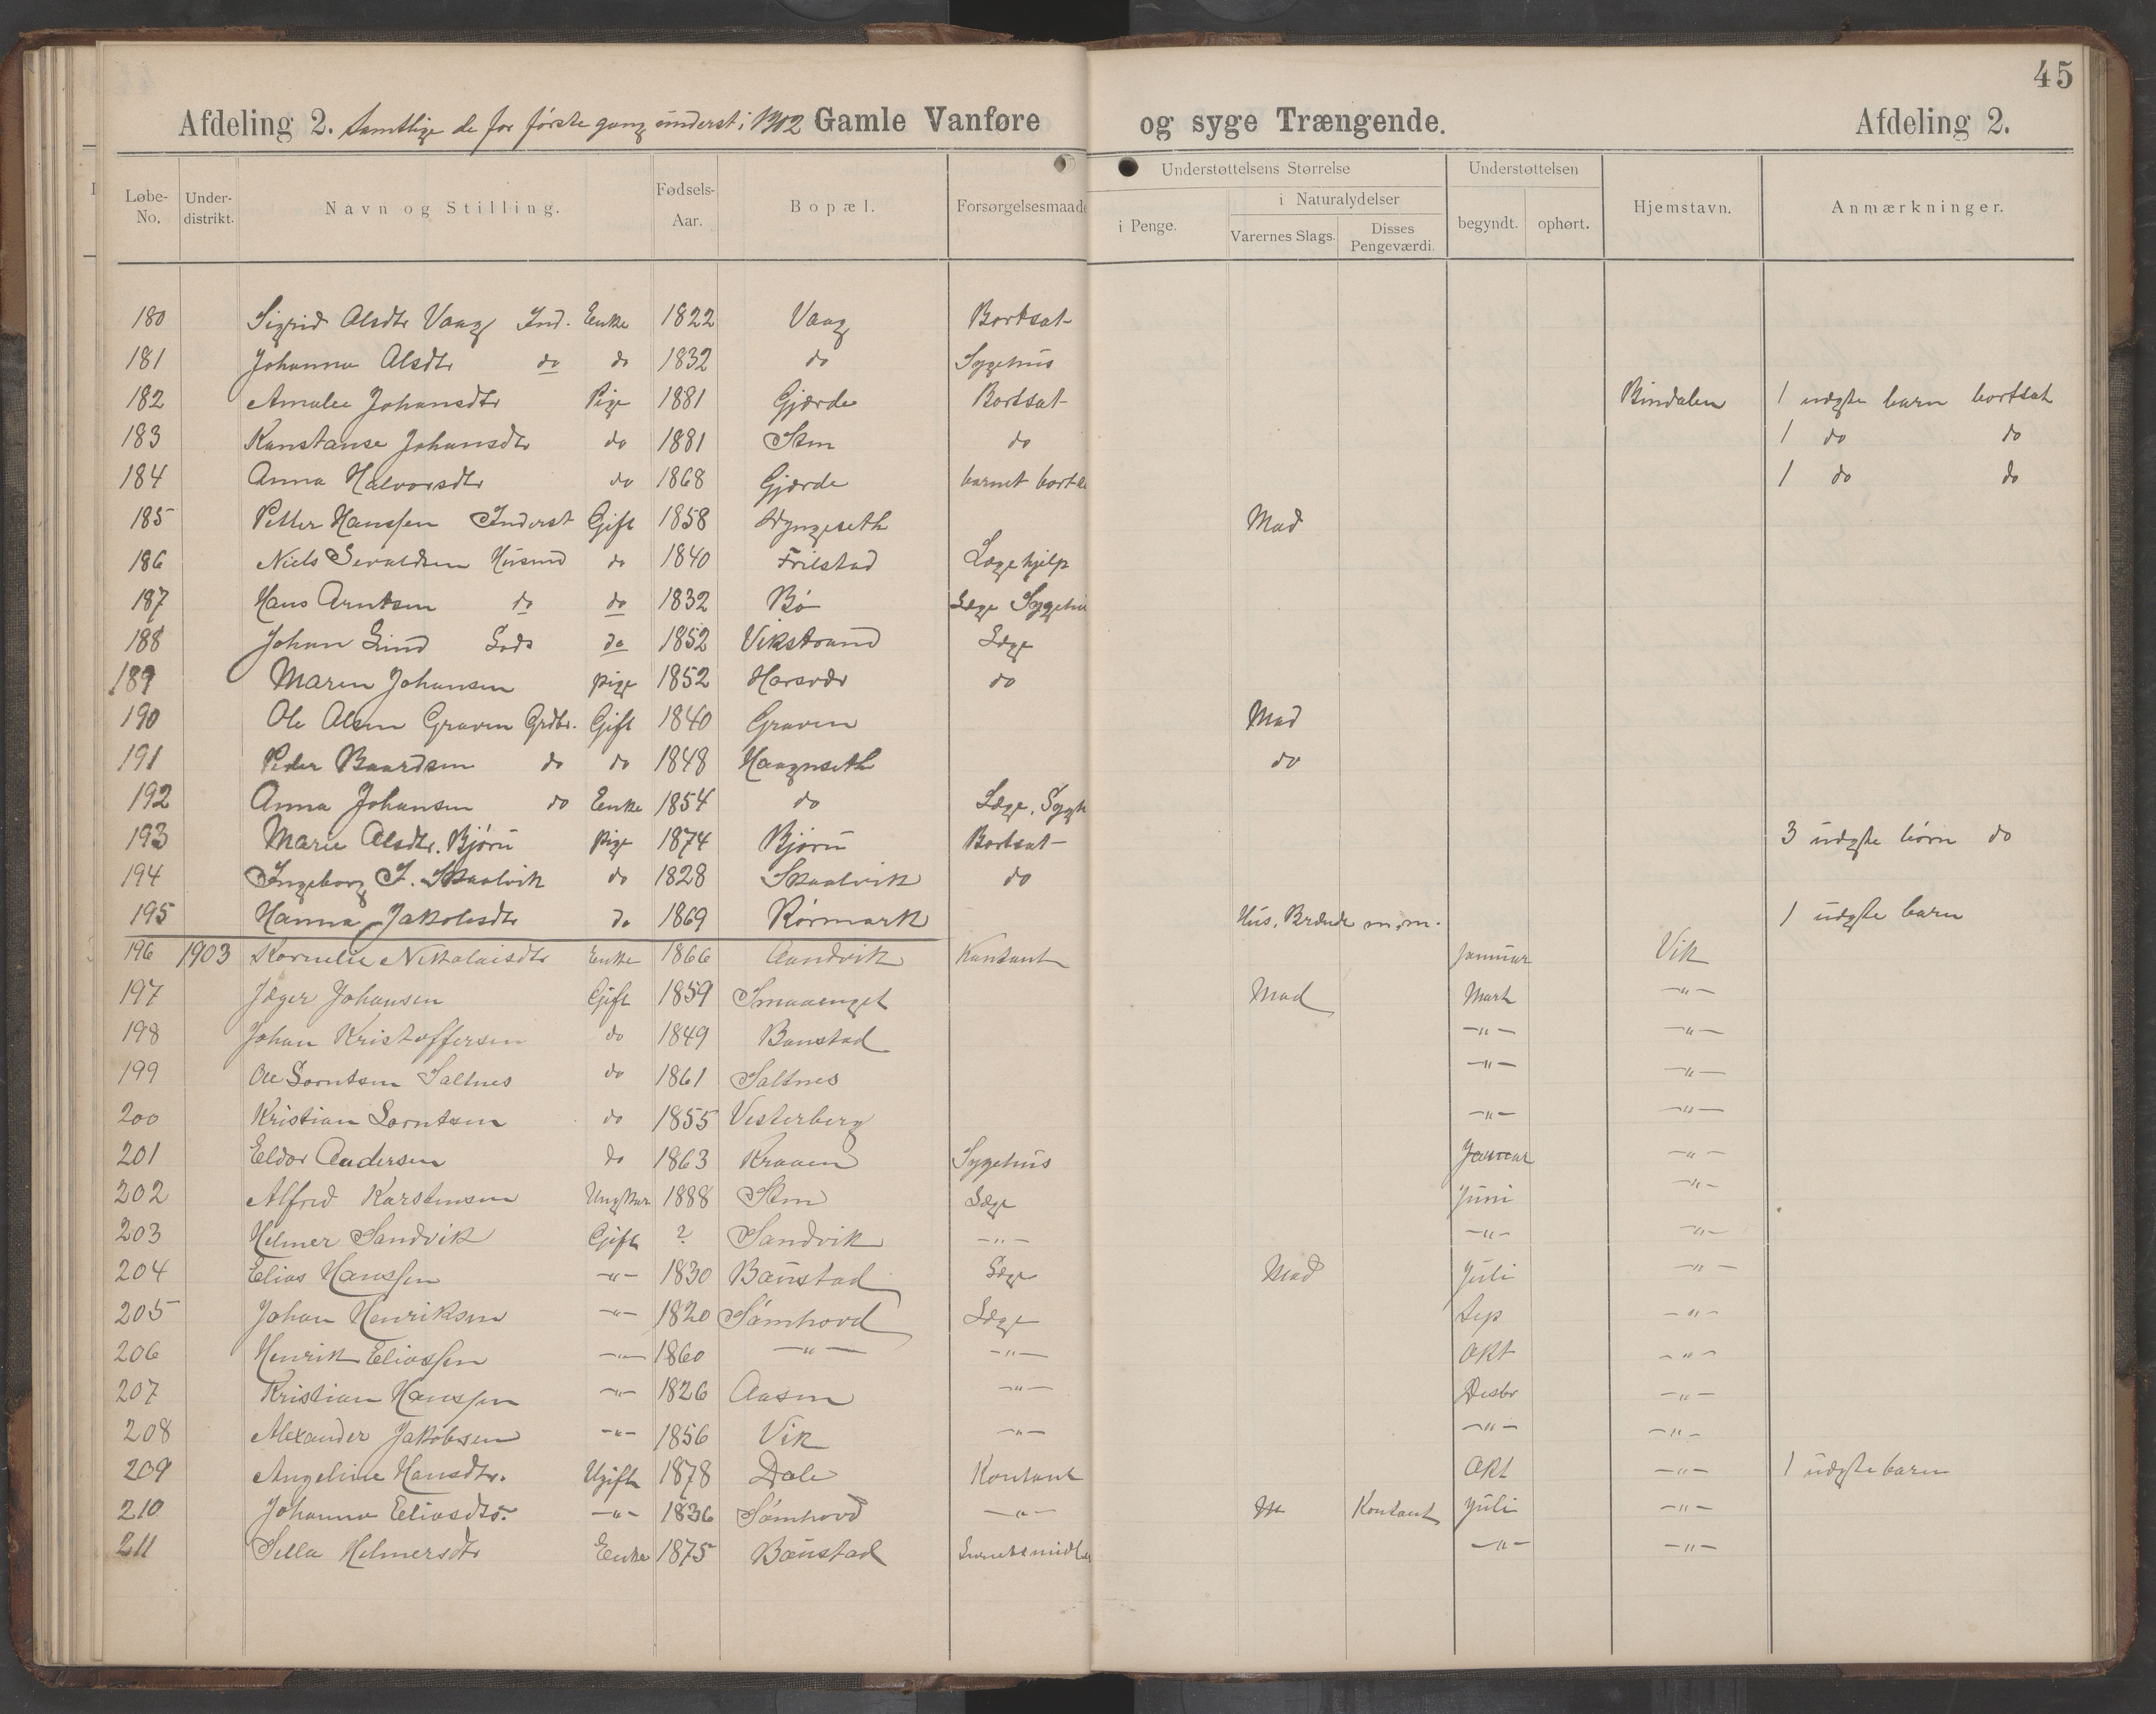 45
Afdeling 2. Samtlige de for første gang underst. i 1902 Gamle Vanføre og syge Trængende. Afdeling 2.
Løbe-No. Under-distrikt. Navn og Stilling. Fødsels-Aar. Bopæl. Forsørgelsesmaade Understøttelsens Størrelse i Penge. i Naturalydelser Varernes Slags. Disses Pengeværdi. Understøttelsen begyndt. ophørt. Hjemstavn. Anmærkninger.
180 Sigrid Olsdtr Vaag Ind. Enke 1822 Vaag Bortsat
181 Johanna Olsdtr do do 1832 do Sygehus
182 Amalie Johansdtr Pige 1881 Gjærde Bortsat Bindalen 1 uægte barn bortsat
183 Konstanse Johansdtr do 1881 Sten do 1 do do
184 Anna Halvorsdtr do 1868 Gjærde barnet 1 do do
185 Petter Hanssen Inderst Gift 1858 Mad
186 Niels Sevaldsen Husmd do 1840 Frilstad Lægehjelp
187 Hans Arntsen do do 1832 Bø Læge Sygehu
188 Johan Lund do 1852 Vikstrand Læge
189 Maren Johansen pige 1852 Horsvær do
190 Ole Olsen Graven Grdbr. Gift 1840 Graven Mad
191 Peder Baardsen do do 1848 Haagnseth do
192 Anna Johansen do Enke 1854 do Læge. Sygh
193 Marie Olsdtr. Bjørü pige 1874 Bjørü Bortsat 3 uægte børn do
194 Ingeborg I. Skaalvik do 1828 Skaalvik do
195 Hanna Jakobsdtr do 1869 Rørmark Hus, Brænde m.m. 1 uægte barn
196 1903 Kornelie Nikolaisdtr Enke 1866 Aandvik Kontant januar Vik
197 Jæger Johansen Gift 1859 Smaaenget Mad Mart —"—
198 Johan Kristoffersen do 1849 Baustad —"— —"—
199 Ole Lorntsen Saltnes do 1861 Saltnes —"— —"—
200 Kristian Lorntsen do 1855 Vesterberg —"— —"—
201 Eldor Andersen do 1863 Kraaen Sygehus Januar —"—
202 Alfred Karstensen Ungkar 1888 Sten Læge Juni —"—
203 Helmer Sandvik Gift ? Sandvik —"— —"— —"—
204 Elias Hanssen —"— 1830 Baustad Læge Mad Juli —"—
205 Johan Henriksen —"— 1820 Sømhovd Læge Sep —"—
206 Henrik Eliassen —"— 1860 —"— —"— Okt —"—
207 Kristian Hanssen —"— 1826 Aasen —"— Desbr —"—
208 Alexander Jakobsen —"— 1856 Vik —"— —"— —"—
209 Angeline Hansdtr. Ugift 1878 Dale Kontant Okt —"— 1 uægte barn
210 Johanna Eliasdtr. —"— 1836 Sømhovd —"— Kontant Juli —"—
211 Sella Helmersdtr Enke 1875 Baustad —"— —"—